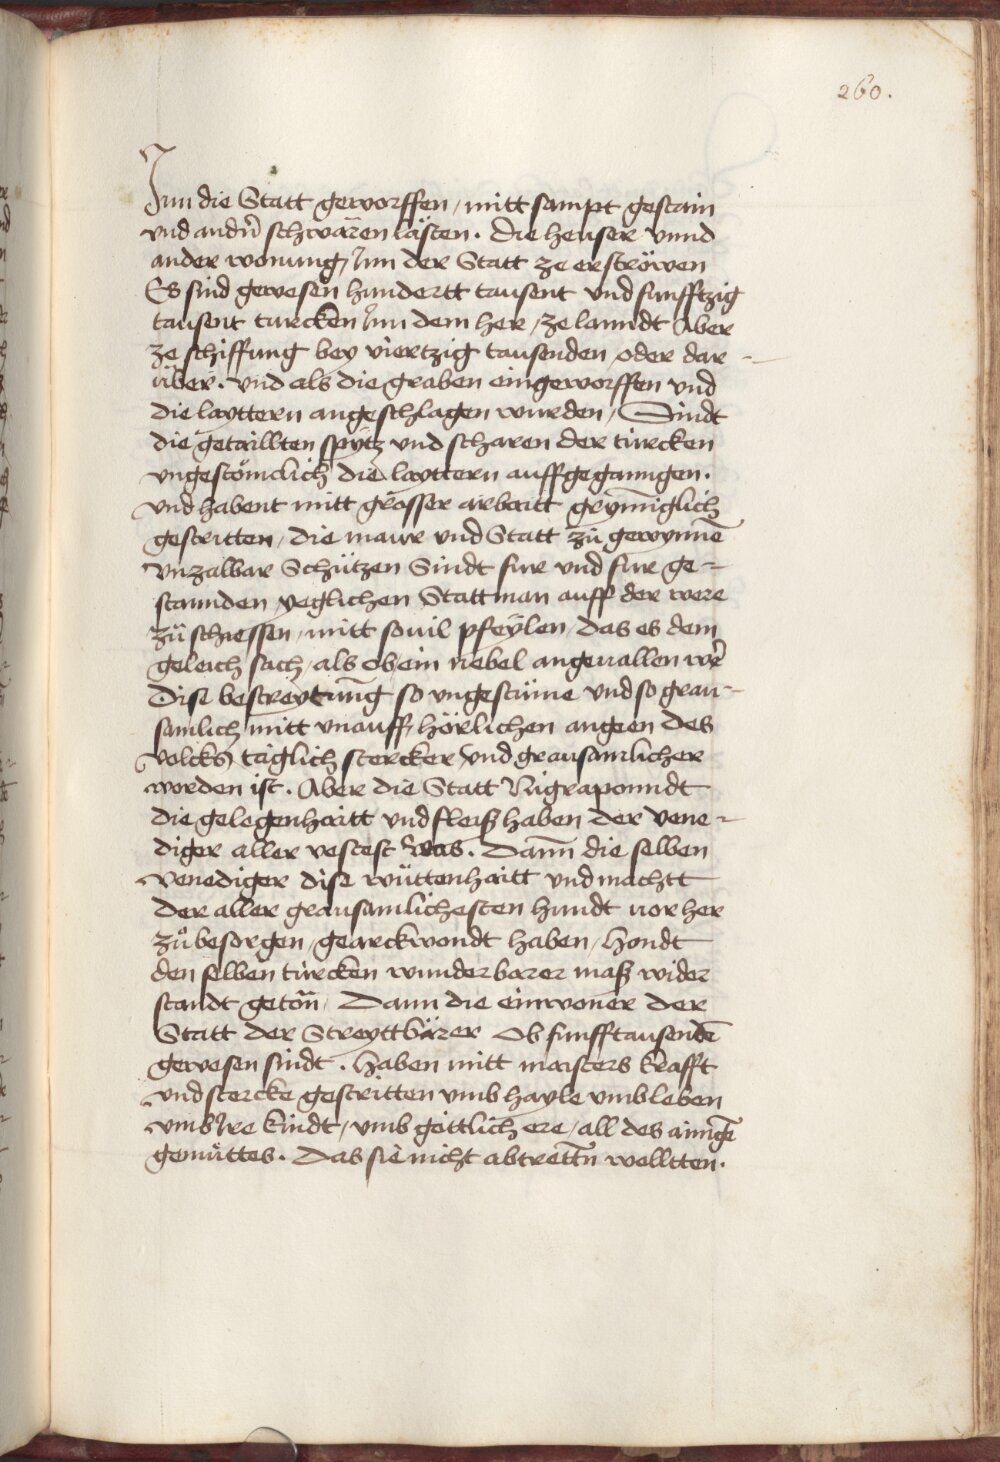 260.
Jnn die Statt geworffen / mitt sampt gestain
vnd andrñ schwären lästen. die heuser vnnd
ander wonung / Jnn der Statt ze erströwen
Es sind gewesen hundertt tausent vnd funfftzig
tausent turcken Jnn dem her / ze lanndt Aber
ze schiffung bey viertzig tausenden / oder dar -
über. vnd als die graben eingeworffen vnd
die layttern angeschlagen wurden / Sindt
die getaillten spytz vnd scharen der türcken
vngestömclich die layttern auffgegangen.
vnd habent mitt grosser arbaitt grym̄iglich
gestritten / die maur vnd Statt zü gewynnē
vnzalbar Schützen Sindt fur vnd fur ge-
stannden yeglichen Stattman auff der were
zü schiessen / mitt souil pfeylen / das es dem
geleich sach / als ob ein nebel angeuallen wer̄
Dise bestreytun̄g so vngestüme vnd so grau-
samlich mitt vnauffhörlichen angeen des
volcks täglich stercker vnd grausamlicher
worden ist. Aber die Statt Nigraponndt
die gelegenhaitt vnd fleiß haben der vene-
diger aller vestest was. Dann̄ die selben
venediger dise wüttenhaitt vnd machtt
der aller grausamlichesten hundt uor her
zů besorgen / gearckwondt haben / hondt
den selben türcken wunderbarer maß wider
standt getön̄ / Dann die einwoner der
Statt der Streyttbärer Ob funfftausendē
gewesen sindt. haben mitt maisters krafft
vnd stercke gestritten vmb hayle vmb leben
vmb Ire kindt / vmb göttlich ere / all des ainigē
gemüttes. Das sie nicht abtrettn̄ wolltten.